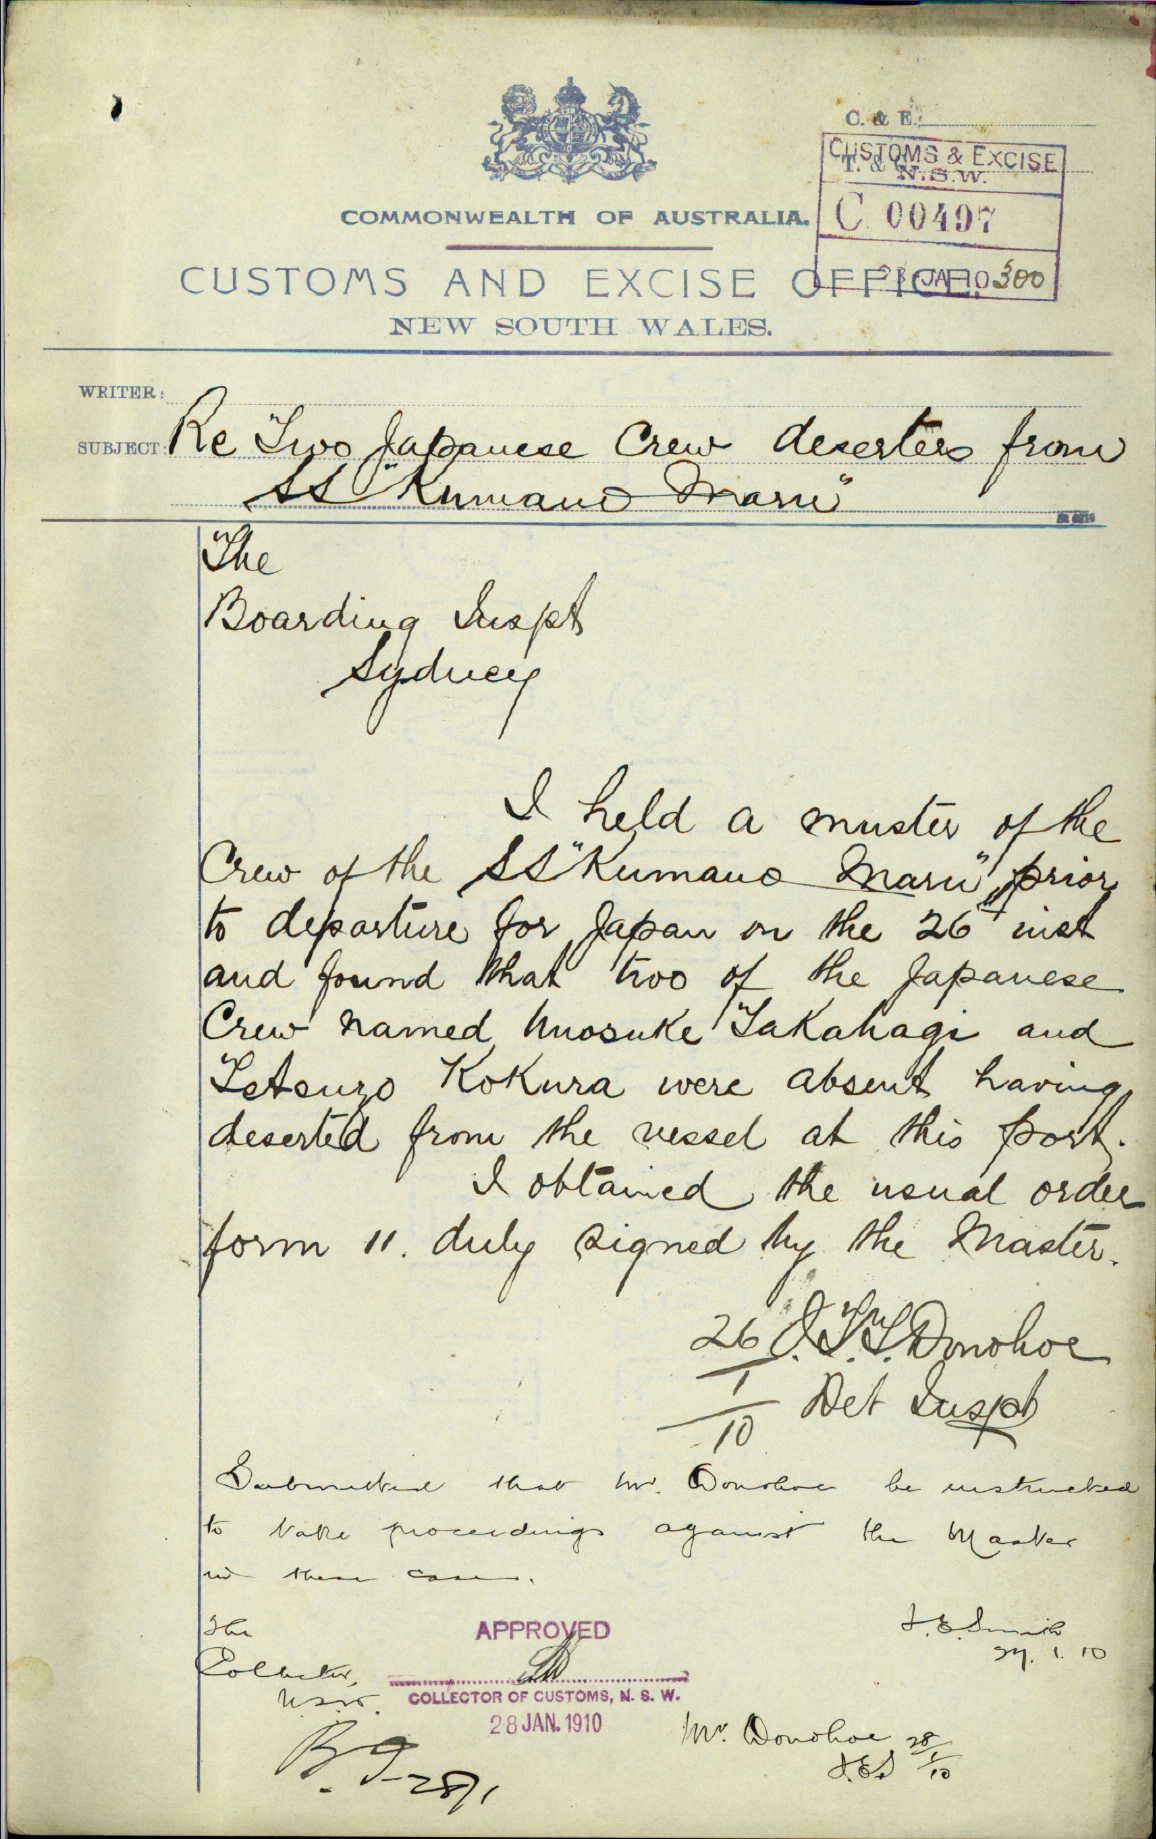 C. & E.
T. & C.
CUSTOMS & EXCISE
N.S.W.
C 00497
28 JAN 10 300
COMMONWEALTH OF AUSTRALIA.
CUSTOMS AND EXCISE OFFICE,
NEW SOUTH WALES.
WRITER:
SUBJECT: Re Two Japanese Crew deserters from
SS "Kumano Maru"
The
Boarding Inspt
Sydney
I held a muster of the
Crew of the SS "Kumano Maru", prior
to departure for Japan on the 26th inst
and found that two of the Japanese
Crew named Unosuke Takahagi and
Tetsuzo Kokura were absent having
deserted from the vessel at this port.
I obtained the usual order
form 11. duly signed by the Master.
26/1/10 J.T.T. Donohoe
Det Inspt
Submitted that Mr. Donohoe be instructed
to take proceedings against the Master
in these cases.
The
Collector,
N.S.W.
J.E. Smith
27.1.10
APPROVED
COLLECTOR OF CUSTOMS, N. S. W.
28 JAN. 1910
Mr. Donohoe 28/1/10
J.E.S
B.I. 28/1